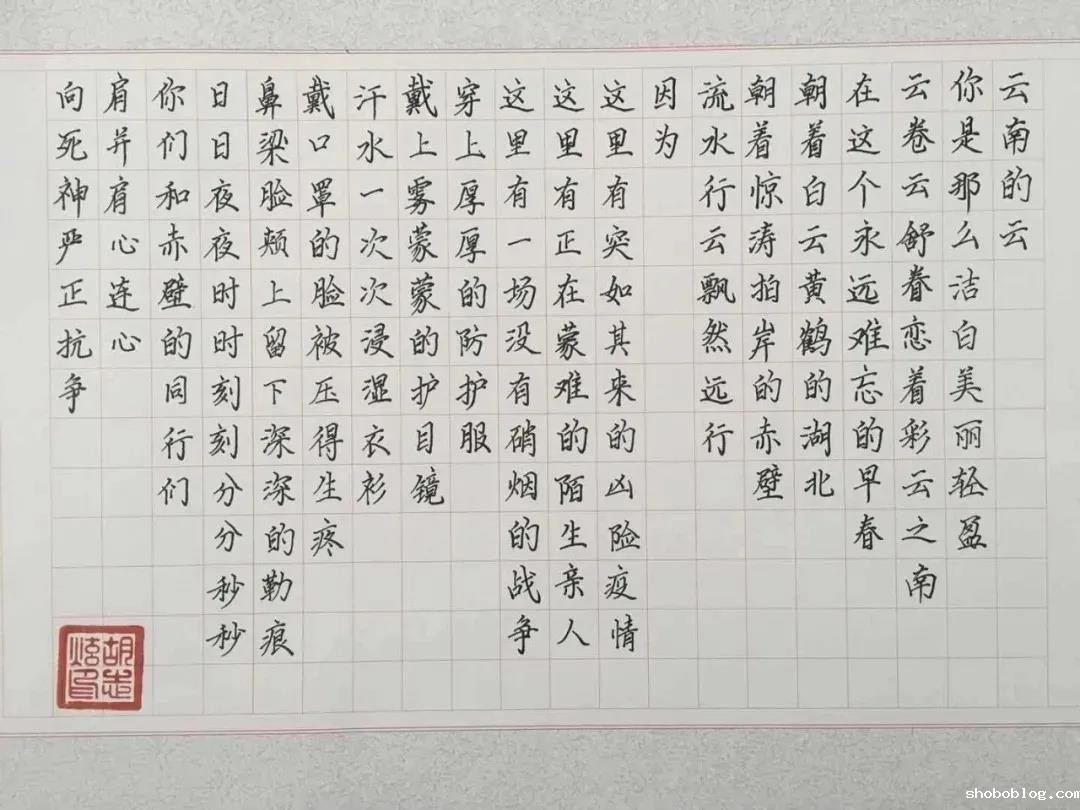 云南的云
你是那么洁白美丽轻盈
云卷云舒眷恋着彩云之南
在这个永远难忘的早春
朝着白云黄鹤的湖北
朝着惊涛拍岸的赤壁
流水行云飘然远行
因为
这里有突如其来的凶险疫情
这里有正在蒙难的陌生亲人
这里有一场没有硝烟的战争
穿上厚厚的防护服
戴上雾蒙蒙的护目镜
汗水一次次浸湿衣衫
戴口罩的脸被压得生疼
鼻梁脸颊上留下深深的勒痕
日日夜夜时时刻刻分分秒秒
你们和赤壁的同行们
肩并肩心连心
向死神严正抗争
shoboblog.com